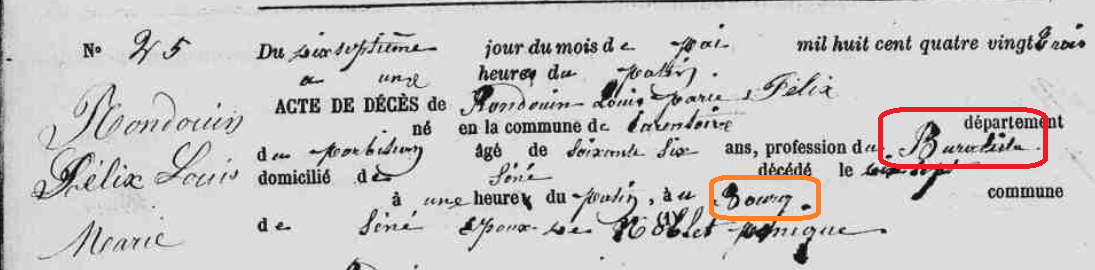 N° 25 Du dix septième jour du mois de mai mil huit cent quatre vingt trois
à une heure du matin.
ACTE DE DÉCÈS de Rondouin Louis Marie Félix
Rondouin
né en la commune de Carentoir département
du Morbihan âgé de soixante six ans, profession de Buraliste
Félix Louis
domicilié de Séné décédé le dix sept
à une heure du matin, à au Bourg. commune
Marie
de Séné époux de Noblet